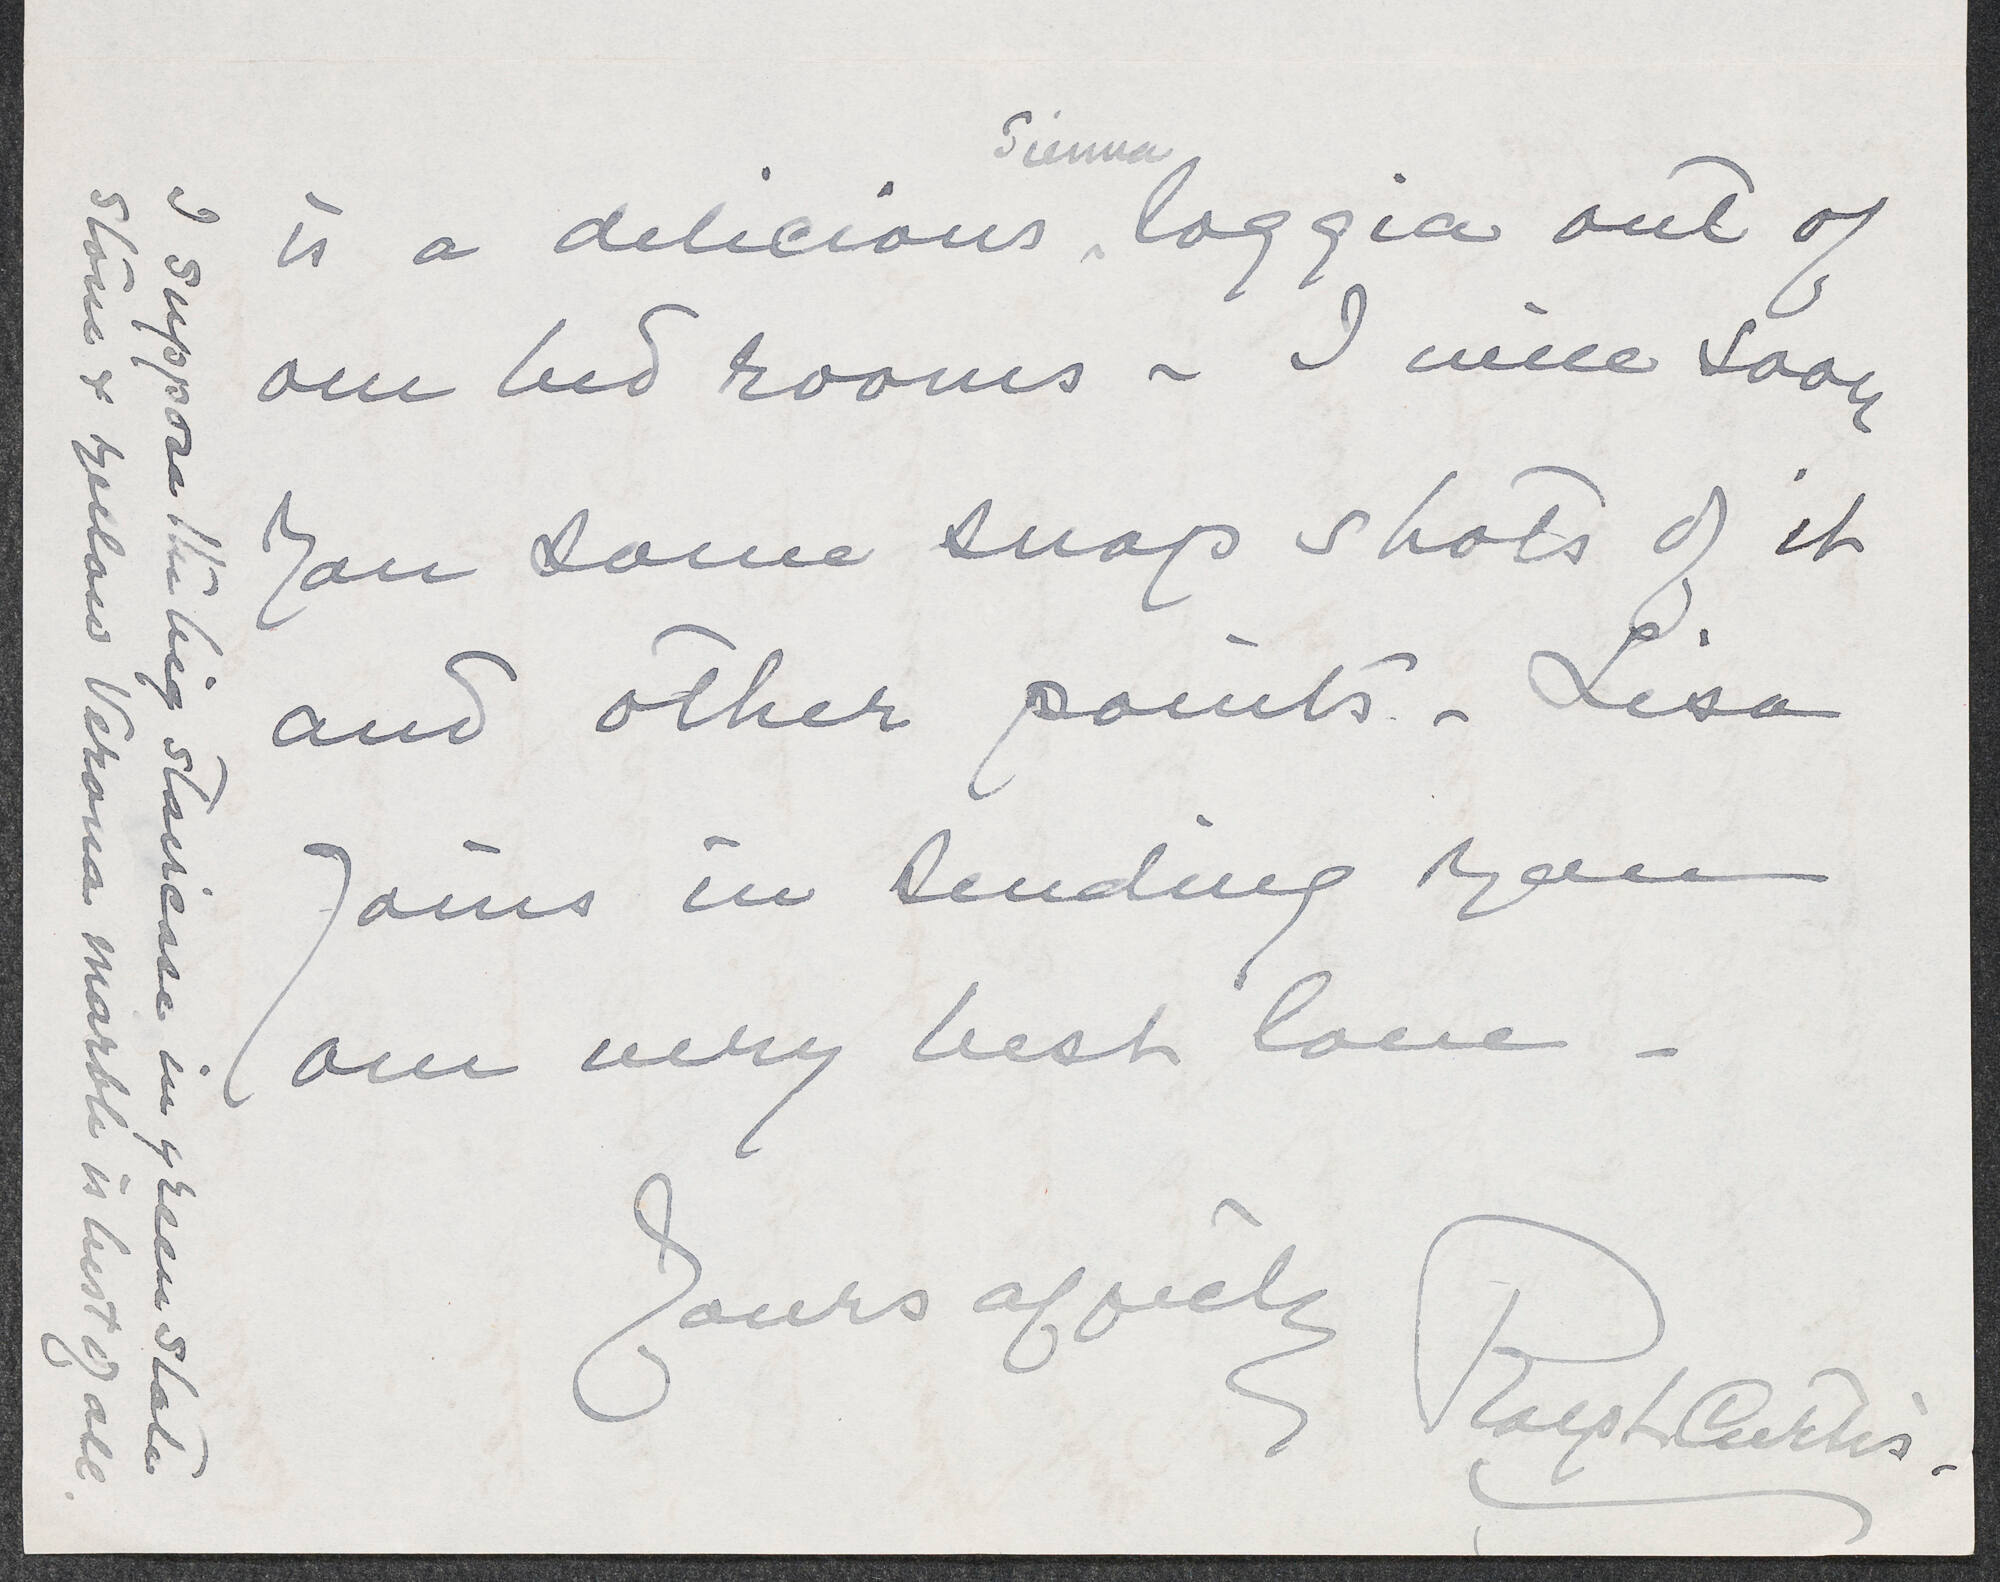 Sienna
is a delicious ‸ loggia out of
our bed rooms - I will soon
you some snap shots of it
and other points - Lisa
joins in sending you
our very best love -
Yours affectely
Ralph Curtis -
I suppose the big staircase in green slate
stone & yellow Verona marble is best of all.